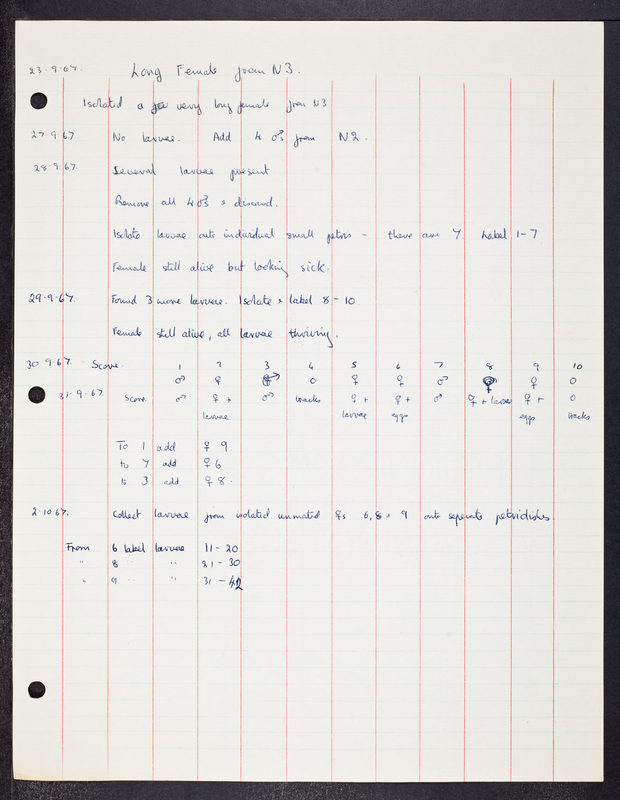 23.9.67. Long Female from N3.
Isolated a very long female from N3
27.9.67 No larvae. Add 4 ♂s from N2.
28.9.67. Several larvae present
Remove all 4 ♂s & discard.
Isolate larvae onto individual small petris – there are 7. Label 1–7
Female still alive but looking sick.
29.9.67. Found 3 more larvae. Isolate & label 8–10
Female still alive, all larvae thriving.
30.9.67. Score. 1 2 3 4 5 6 7 8 9 10
♂ ♀ ♂ 0 ♀ ♀ ♂ ♀ ♀ 0
31.9.67. Score ♂ ♀ + ♂ tracks ♀ + ♀ + ♂ ♀ + larvae ♀ + 0
larvae larvae eggs eggs tracks
To 1 add ♀ 9
to 7 add ♀ 6
to 3 add ♀ 8.
2.10.67. Collect larvae from isolated unmated ♀s 6, 8 & 9 onto seperate petridishes.
From 6 label larvae 11–20
" 8 " " 21–30
" 9 " " 31–42